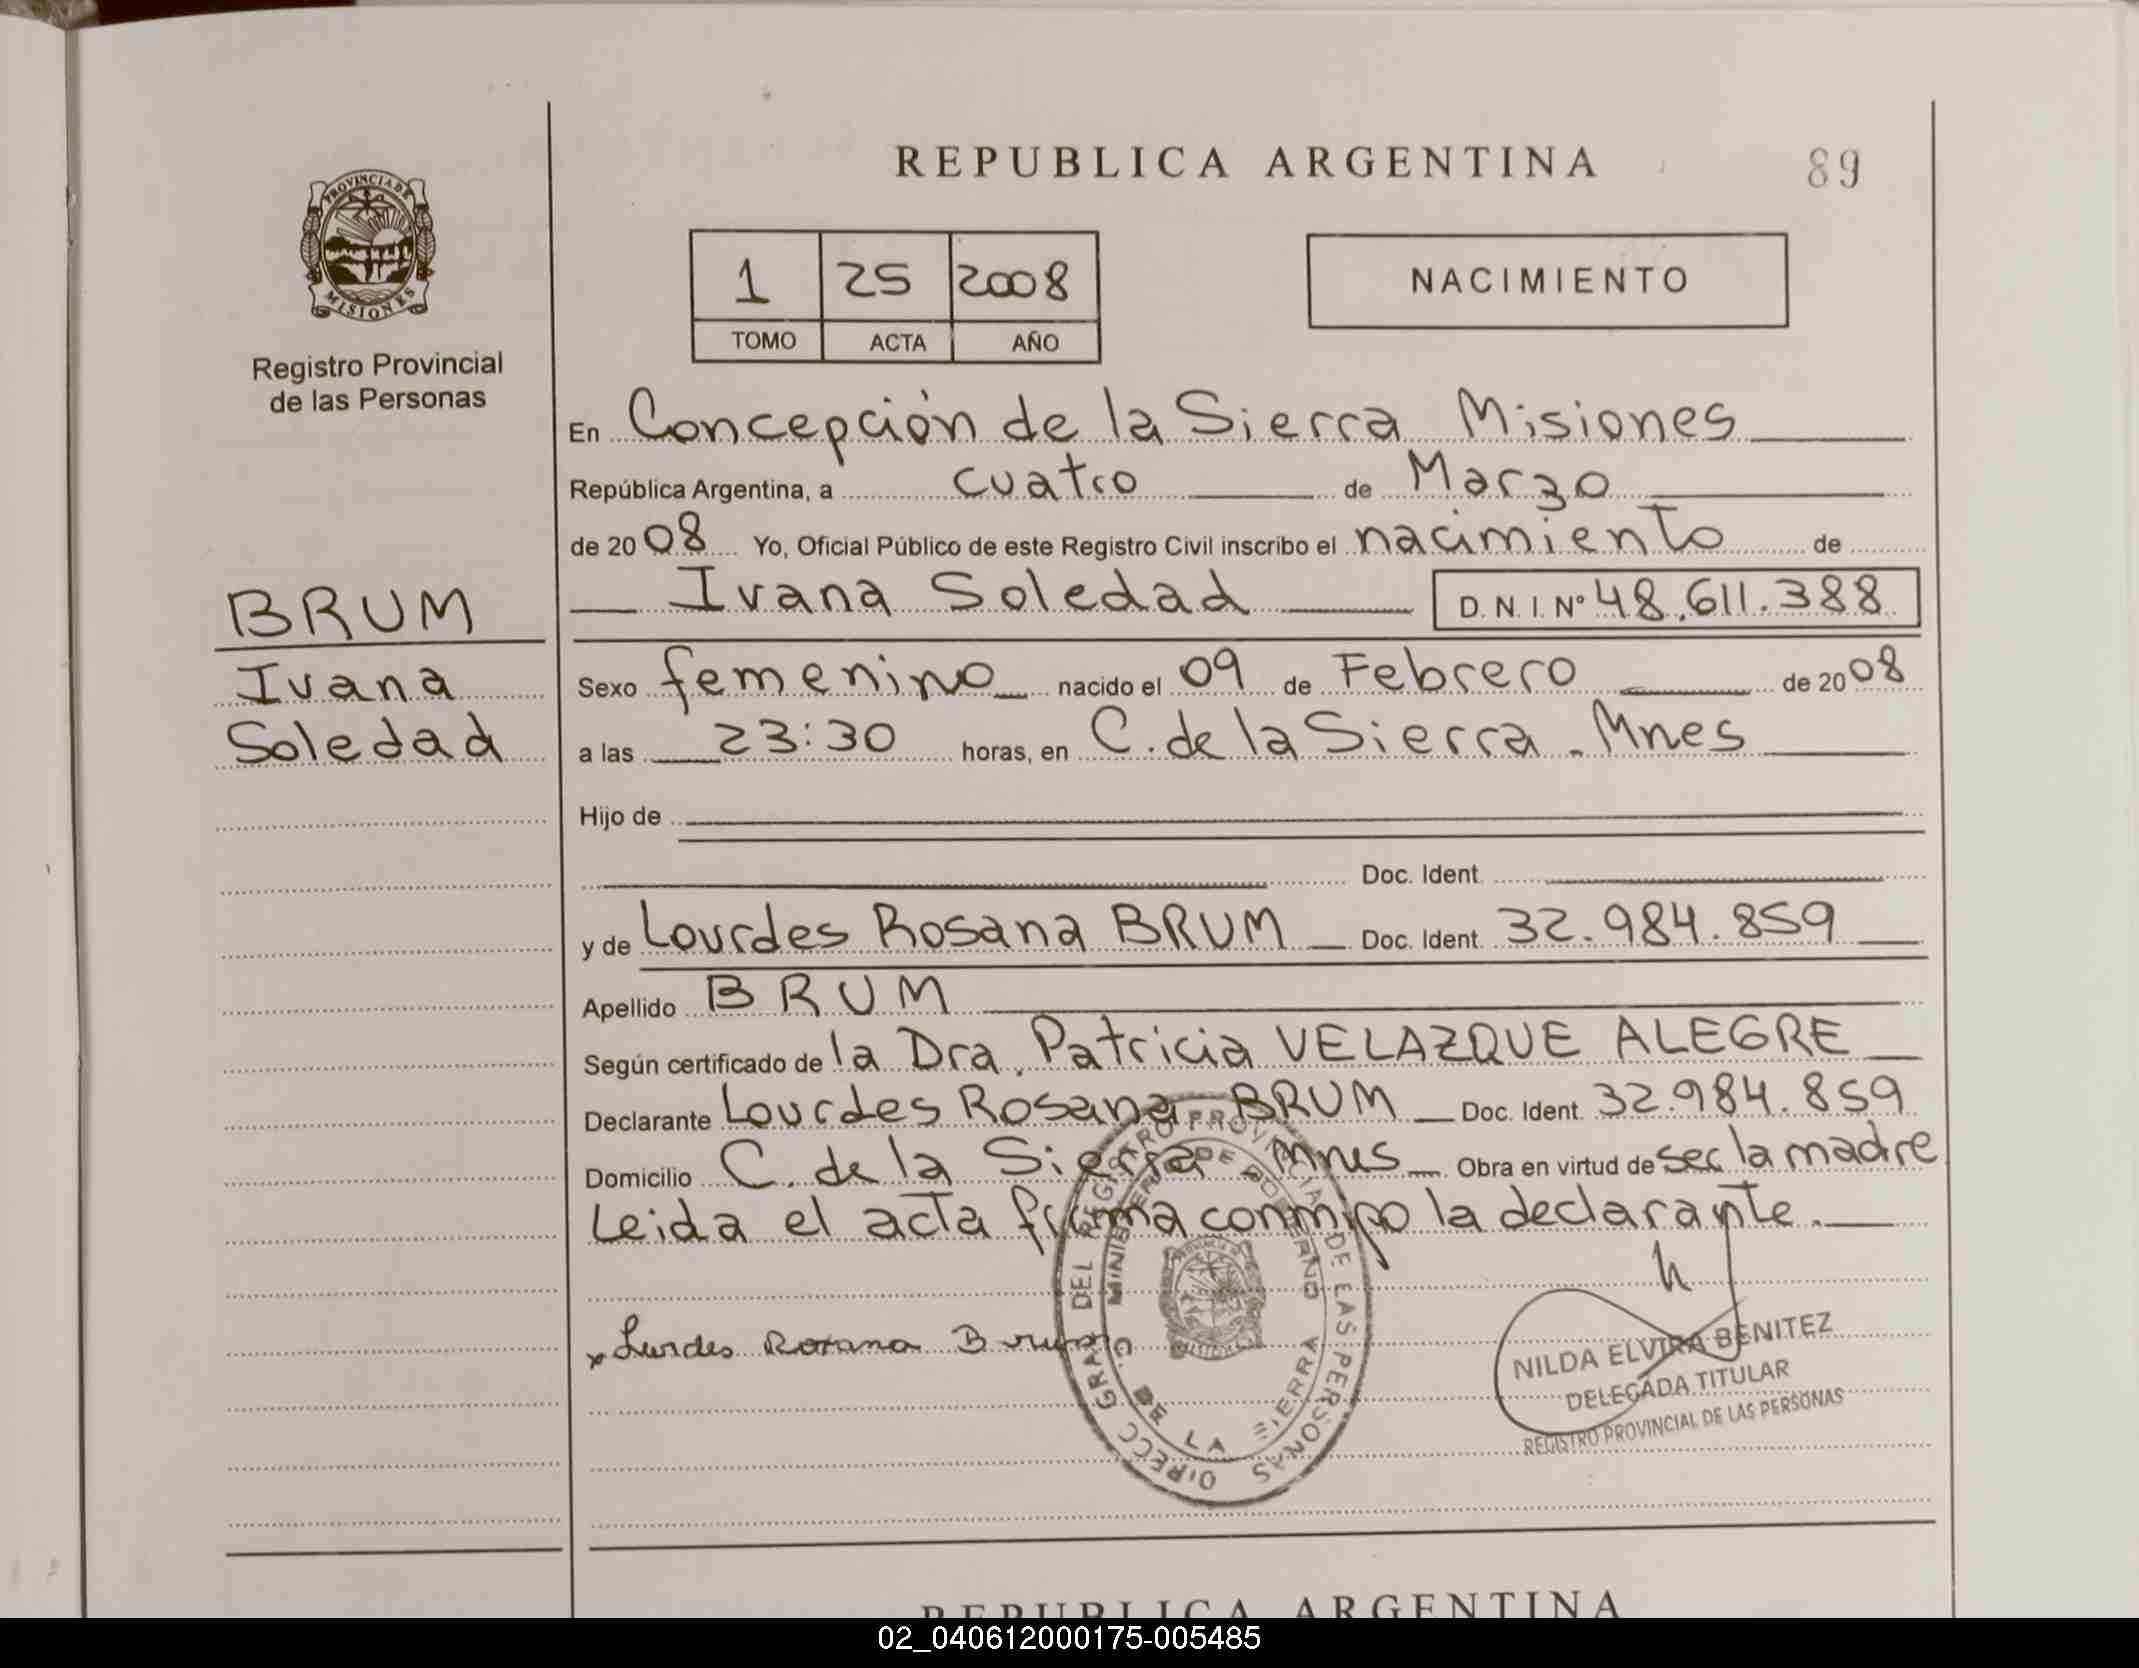 REPUBLICA ARGENTINA
89
PROVINCIA DE
MISIONES
Registro Provincial
de las Personas
1 25 2008
TOMO ACTA AÑO
NACIMIENTO
En Concepción de la Sierra Misiones
República Argentina, a cuatro de Marzo
de 2008 Yo, Oficial Público de este Registro Civil inscribo el nacimiento de
Ivana Soledad D. N. I. Nº 48.611.388
BRUM
Ivana
Soledad
Sexo femenino nacido el 09 de Febrero de 2008
a las 23:30 horas, en C. de la Sierra. Mnes
Hijo de
Doc. Ident.
y de Lourdes Rosana BRUM Doc. Ident. 32.984.859
Apellido BRUM
Según certificado de la Dra. Patricia VELAZQUE ALEGRE
Declarante Lourdes Rosana BRUM Doc. Ident. 32.984.859
Domicilio C. de la Sierra Mnes Obra en virtud de ser la madre
Leida el acta firma conmigo la declarante.
x Lurdes Rosana Brum
DIRECC GRAL DEL REGISTRO PROVINCIAL DE LAS PERSONAS
MINISTERIO DE GOBIERNO
C. DE LA SIERRA
NILDA ELVIRA BENITEZ
DELEGADA TITULAR
REGISTRO PROVINCIAL DE LAS PERSONAS
REPUBLICA ARGENTINA
02_040612000175-005485